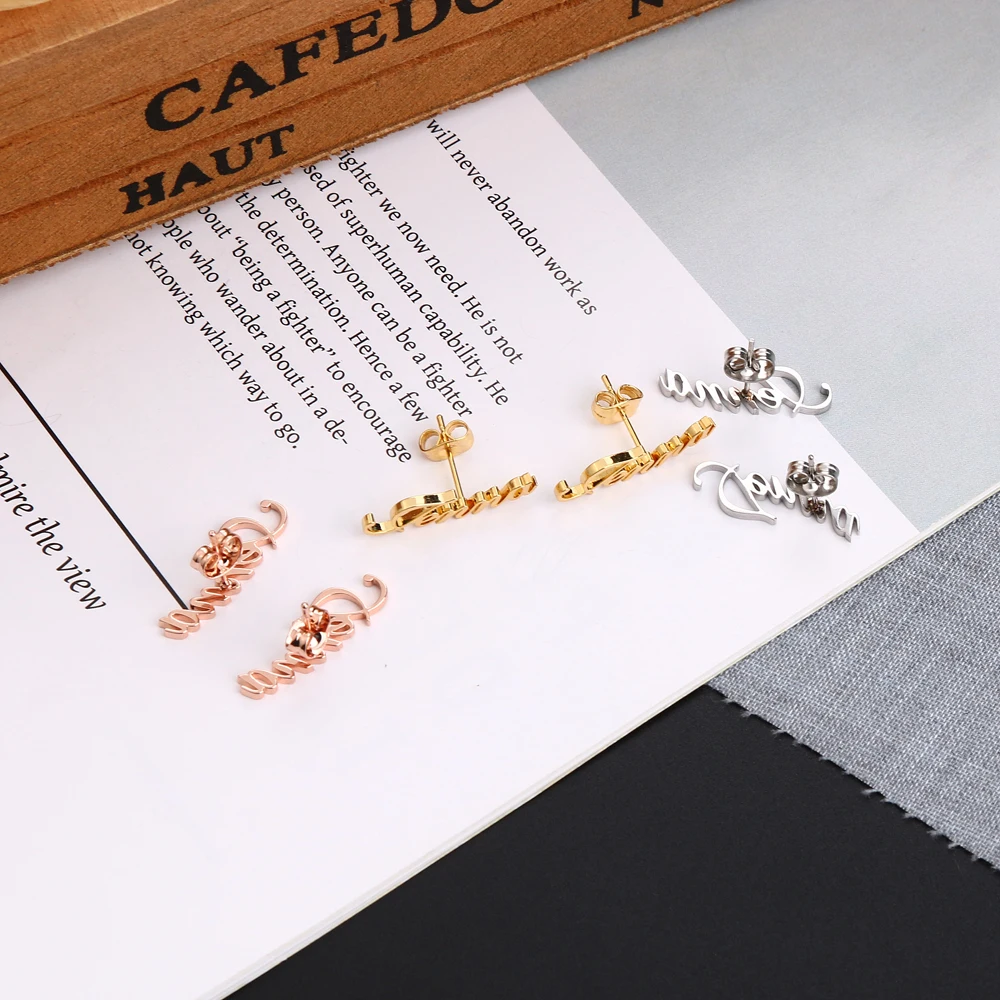 CAFEDO
HAUT
N
will never abandon work as
ighter we now need. He is not
sed of superhuman capability. He
y person. Anyone can be a fighter
the determination. Hence a few
bout “being a fighter” to encourage
ople who wander about in a de-
not knowing which way to go.
dmire the view